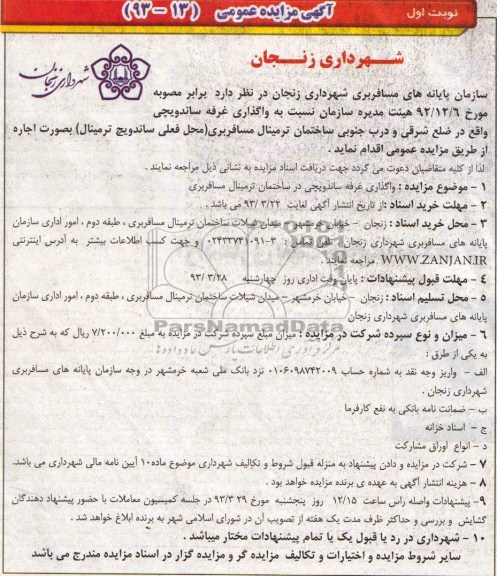 نوبت اول
آگهی مزایده عمومی (۱۳ – ۹۳)
شهرداری زنجان
شهرداری زنجان
سازمان پایانه های مسافربری شهرداری زنجان در نظر دارد برابر مصوبه
مورخ ۹۲/۱۲/۶ هیئت مدیره سازمان نسبت به واگذاری غرفه ساندویچی
واقع در ضلع شرقی و درب جنوبی ساختمان ترمینال مسافربری(محل فعلی ساندویچ ترمینال) بصورت اجاره
از طریق مزایده عمومی اقدام نماید .
لذا از کلیه متقاضیان دعوت می گردد جهت دریافت اسناد مزایده به نشانی ذیل مراجعه نمایند .
۱ – موضوع مزایده : واگذاری غرفه ساندویچی در ساختمان ترمینال مسافربری
۲ – مهلت خرید اسناد :از تاریخ انتشار آگهی لغایت ۹۳/۳/۲۲ می باشد .
۳ – محل خرید اسناد : زنجان – خیابان خرمشهر – میدان شیلات ساختمان ترمینال مسافربری ، طبقه دوم ، امور اداری سازمان
پایانه های مسافربری شهرداری زنجان تلفن تماس : ۳-۰۲۴۳۳۷۴۱۰۹۱ و جهت کسب اطلاعات بیشتر به آدرس اینترنتی
WWW.ZANJAN.IR مراجعه نمایند .
۴ – مهلت قبول پیشنهادات : پایان وقت اداری روز چهارشنبه ۹۳/۳/۲۸
۵ – محل تسلیم اسناد : زنجان – خیابان خرمشهر – میدان شیلات ساختمان ترمینال مسافربری ، طبقه دوم ، امور اداری سازمان
پایانه های مسافربری شهرداری زنجان
ParsNamadData
۶ – میزان و نوع سپرده شرکت در مزایده : میزان مبلغ سپرده شرکت در مزایده به مبلغ ۷/۲۰۰/۰۰۰ ریال که به شرح ذیل
به یکی از طرق :
الف – واریز وجه نقد به شماره حساب ۰۱۰۶۰۹۸۷۴۲۰۰۹ نزد بانک ملی شعبه خرمشهر در وجه سازمان پایانه های مسافربری
شهرداری زنجان .
ب – ضمانت نامه بانکی به نفع کارفرما
ج – اسناد خزانه
د – انواع اوراق مشارکت
۷ – شرکت در مزایده و دادن پیشنهاد به منزله قبول شروط و تکالیف شهرداری موضوع ماده۱۰ آیین نامه مالی شهرداری می باشد.
۸ – هزینه انتشار آگهی به عهده ی برنده مزایده خواهد بود .
۹ – پیشنهادات واصله راس ساعت ۱۲/۱۵ روز پنجشنبه مورخ ۹۳/۳/۲۹ در جلسه کمیسیون معاملات با حضور پیشنهاد دهندگان
گشایش و بررسی و حداکثر ظرف مدت یک هفته از تصویب آن در شورای اسلامی شهر به برنده ابلاغ خواهد شد .
۱۰ – شهرداری در رد یا قبول یک یا تمام پیشنهادات مختار میباشد .
سایر شروط مزایده و اختیارات و تکالیف مزایده گر و مزایده گزار در اسناد مزایده مندرج می باشد